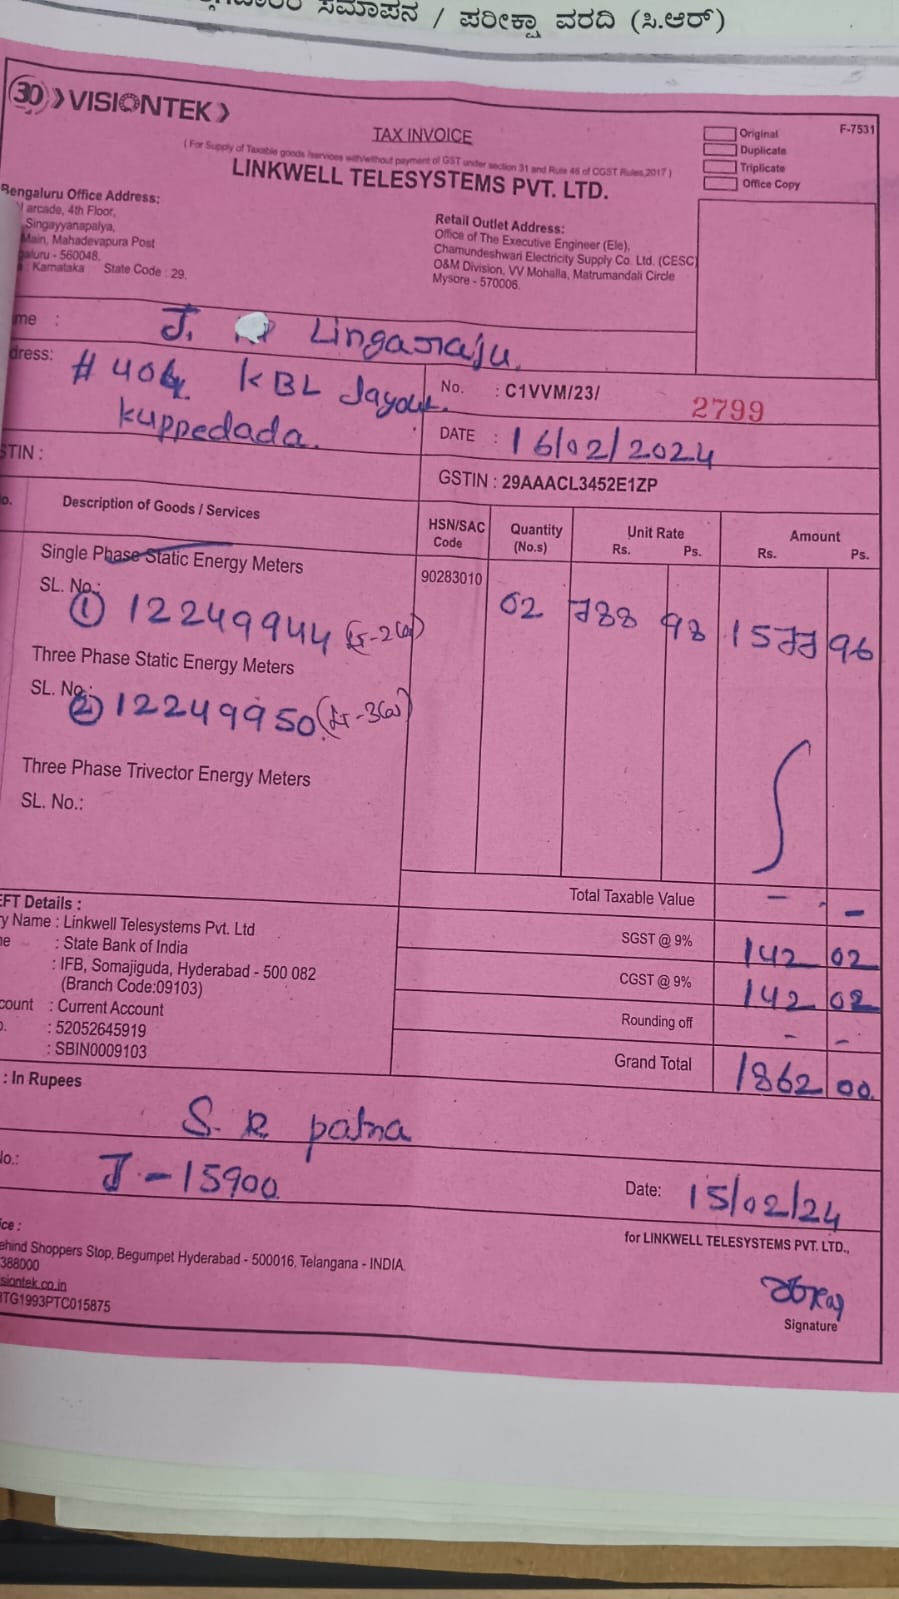 ಸಮಾಪನ / ಪರೀಕ್ಷಾ ವರದಿ (ಸಿ.ಆರ್)
30 VISIONTEK
TAX INVOICE
(For Supply of Taxable goods /services with/without payment of GST under section 31 and Rule 46 of CGST Rules,2017)
LINKWELL TELESYSTEMS PVT. LTD.
F-7531
Original
Duplicate
Triplicate
Office Copy
Bengaluru Office Address:
arcade, 4th Floor,
Singayyanapalya,
Main, Mahadevapura Post
- 560048.
: Karnataka State Code : 29.
Retail Outlet Address:
Office of The Executive Engineer (Ele),
Chamundeshwari Electricity Supply Co. Ltd. (CESC)
O&M Division, VV Mohalla, Matrumandali Circle
Mysore - 570006.
: J. Lingaraju.
# 404 KBL Layout
Kuppedada.
No. : C1VVM/23/ 2799
DATE : 16/02/2024
GSTIN : 29AAACL3452E1ZP
Description of Goods / Services HSN/SAC Code Quantity (No.s) Unit Rate Rs. Ps. Amount Rs. Ps.
Single Phase Static Energy Meters 90283010
SL. No.: ① 12249944 02 788 98 1577 96
Three Phase Static Energy Meters
SL. No.: ② 12249950
Three Phase Trivector Energy Meters
SL. No.:
Total Taxable Value - -
SGST @ 9% 142 02
CGST @ 9% 142 02
Rounding off - -
Grand Total 1862 00.
EFT Details :
Name : Linkwell Telesystems Pvt. Ltd
: State Bank of India
: IFB, Somajiguda, Hyderabad - 500 082
(Branch Code:09103)
: Current Account
: 52052645919
: SBIN0009103
: In Rupees
S. R. patna
J - 15900 Date: 15/02/24
for LINKWELL TELESYSTEMS PVT. LTD.,
Shoppers Stop, Begumpet Hyderabad - 500016, Telangana - INDIA.
388000
TG1993PTC015875
Signature